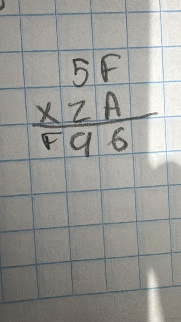 5F
x2A
F96